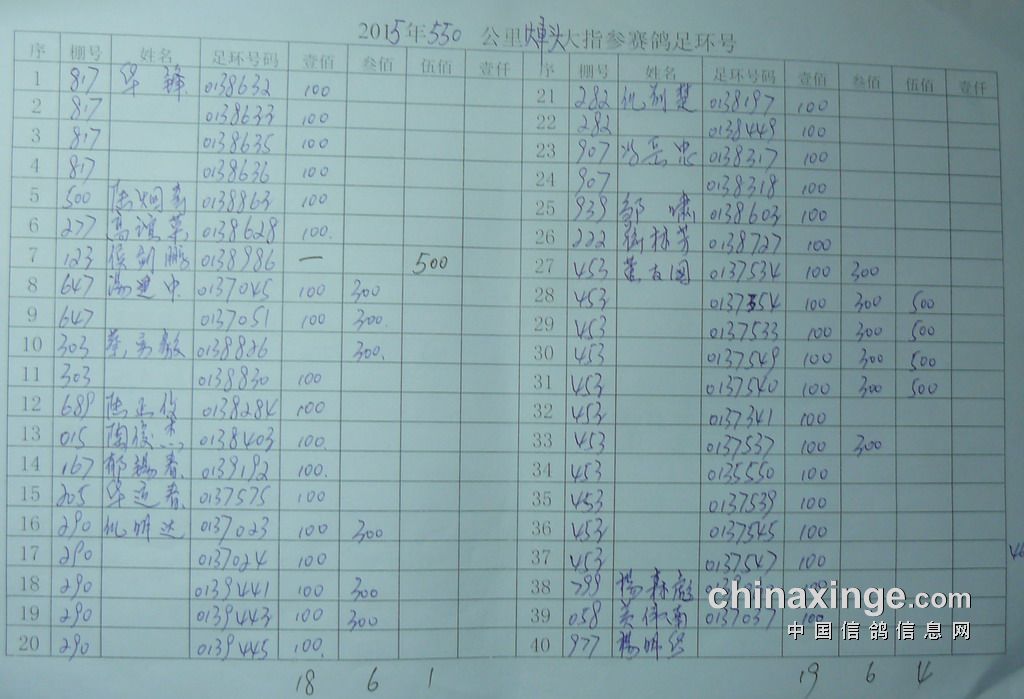 2015年550 公里埤头大指参赛鸽足环号
序 棚号 姓名 足环号码 壹佰 叁佰 伍佰 壹仟
1 817 华锋 0138632 100
2 817 0138633 100
3 817 0138635 100
4 817 0138636 100
5 500 0138863 100
6 277 0138628 100.
7 123 侯剑鹏 0138986 — 500
8 647 汤建中 0137045 100 300
9 647 0137051 100 300.
10 303 0138826 300.
11 303 0138830 100
12 689 陆正俊 0138284 100
13 015 陶俊杰 0138403 100.
14 167 郁锡春 0139192 100.
15 205 华运春 0137575 100
16 290 仇明达 0137023 100 300
17 290 0137024 100
18 290 0139441 100 300
19 290 0139443 100 300
20 290 0139445 100.
18 6 1
序 棚号 姓名 足环号码 壹佰 叁佰 伍佰 壹仟
21 282 仇剑楚 0138197 100
22 282 0138449 100
23 907 冯岳忠 0138317 100
24 907 0138318 100
25 939 邹啸 0138603 100
26 222 0138727 100
27 453 黄友国 0137534 100 300
28 453 0137554 100 300 500
29 453 0137533 100 300 500
30 453 0137549 100 300 500
31 453 0137540 100 300 500
32 453 0137341 100
33 453 0137537 100 300
34 453 0135550 100
35 453 0137539 100
36 453 0137545 100
37 453 0137547 100
38 799 杨森彪 100
39 058 0137037 100
40 977
19 6 4
chinaxinge.com
中国信鸽信息网